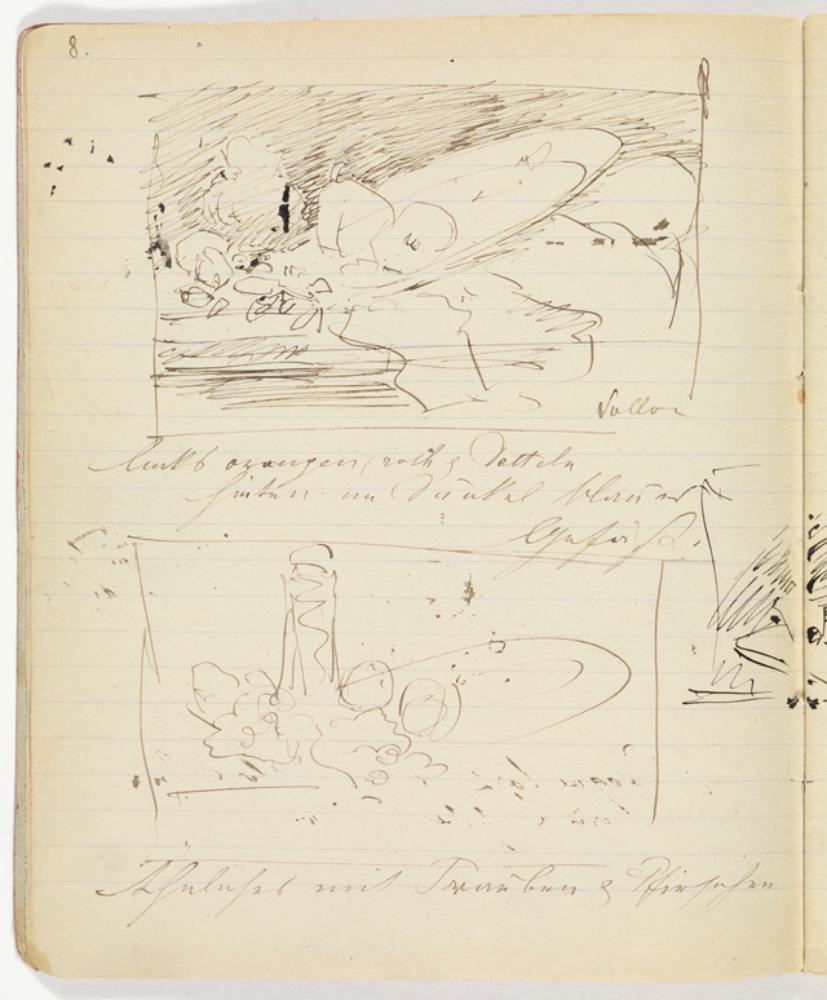 8.
Vollon
links orangen, roth & Datteln
hinten im Dunkel blaues
Gefäß.
Ähnliches mit Trauben & Pfirsichen